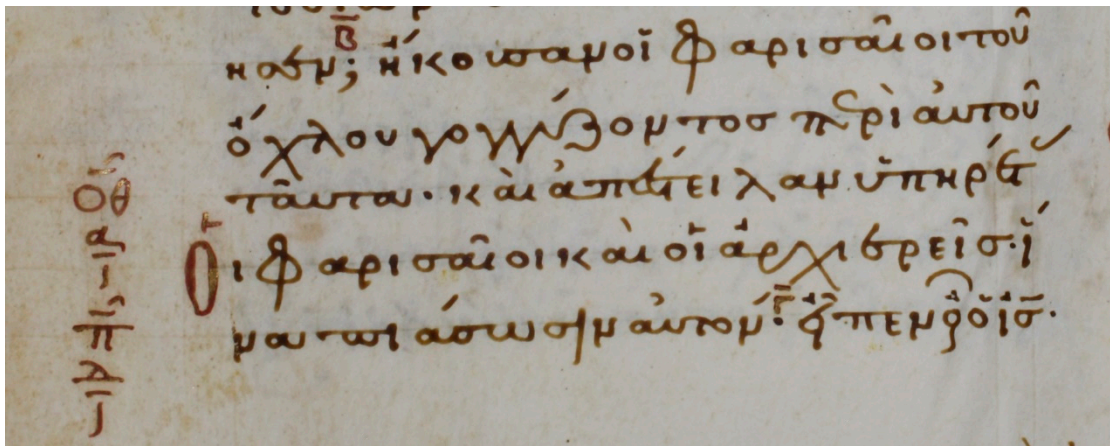 ησεν; ἤκουσαν οἱ Φαρισαῖοι τοῦ
ὄχλου γογγύζοντος περὶ αὐτοῦ
ταῦτα· καὶ ἀπέστειλαν ὑπηρέτ
Οἱ Φαρισαῖοι καὶ οἱ ἀρχιερεῖς· ἵ
να πιάσωσιν αὐτόν· εἶπεν οὖν ὁ ἰς·